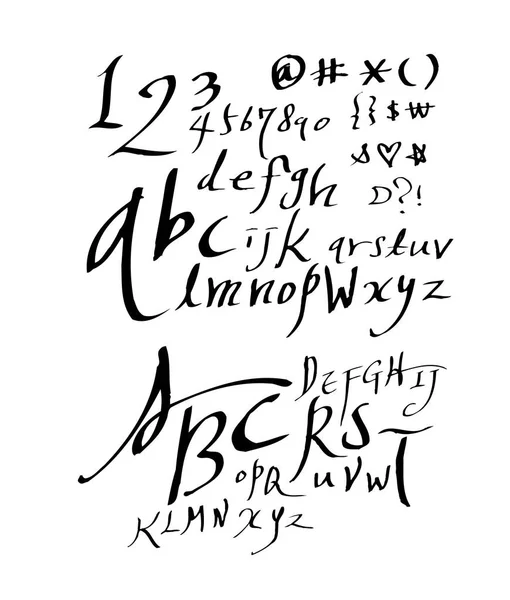 1 2 3 @ # * ( )
4 5 6 7 8 9 0 { } $ ₩
d e f g h ♡
D ? !
a b c i j k q r s t u v
l m n o p w x y z
D E F G H I J
A B C R S T
O P Q U V W
K L M N X Y Z